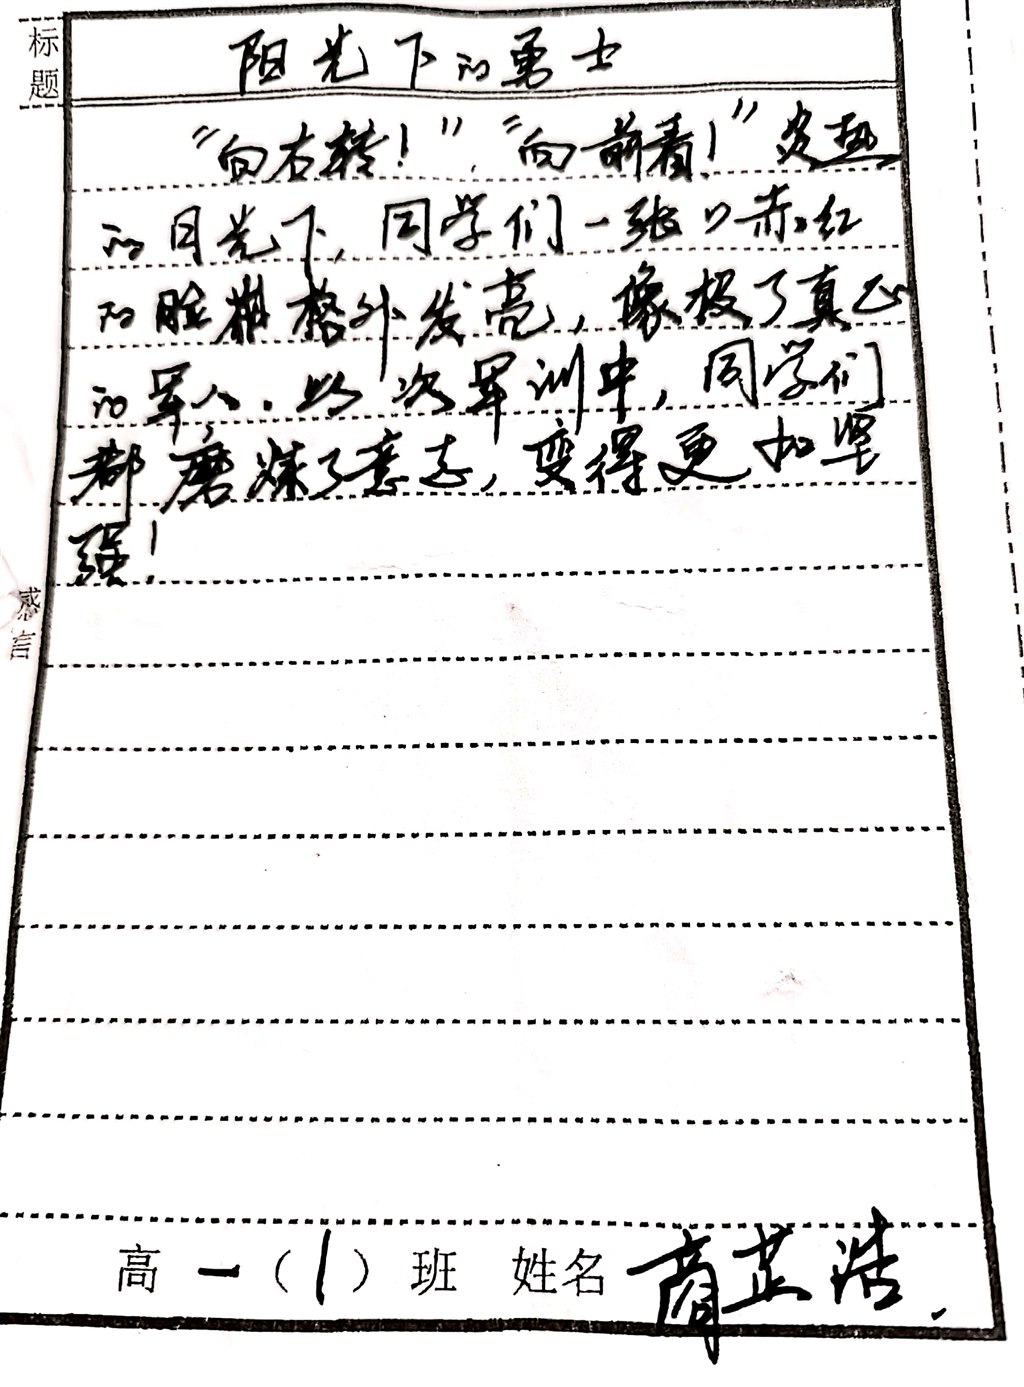 标题
阳光下的勇士
“向右转！”，“向前看！”炎热
的月光下，同学们一张口赤红
的脸都格外发亮，像极了真正
的军人。此次军训中，同学们
都磨炼了意志，变得更加坚
强！
感言
高一（1）班 姓名 商芷浩